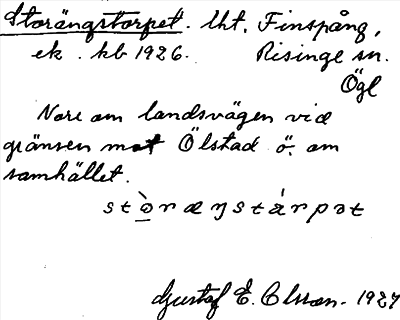 Storängstorpet. lht. Finspång,
ek. kb 1926. Risinge sn.
Ögl
Norr om landsvägen vid
gränsen mot Ölstad ö. om
samhället.
stò̱ræŋstárpət
Gustaf E. Olsson. 1927